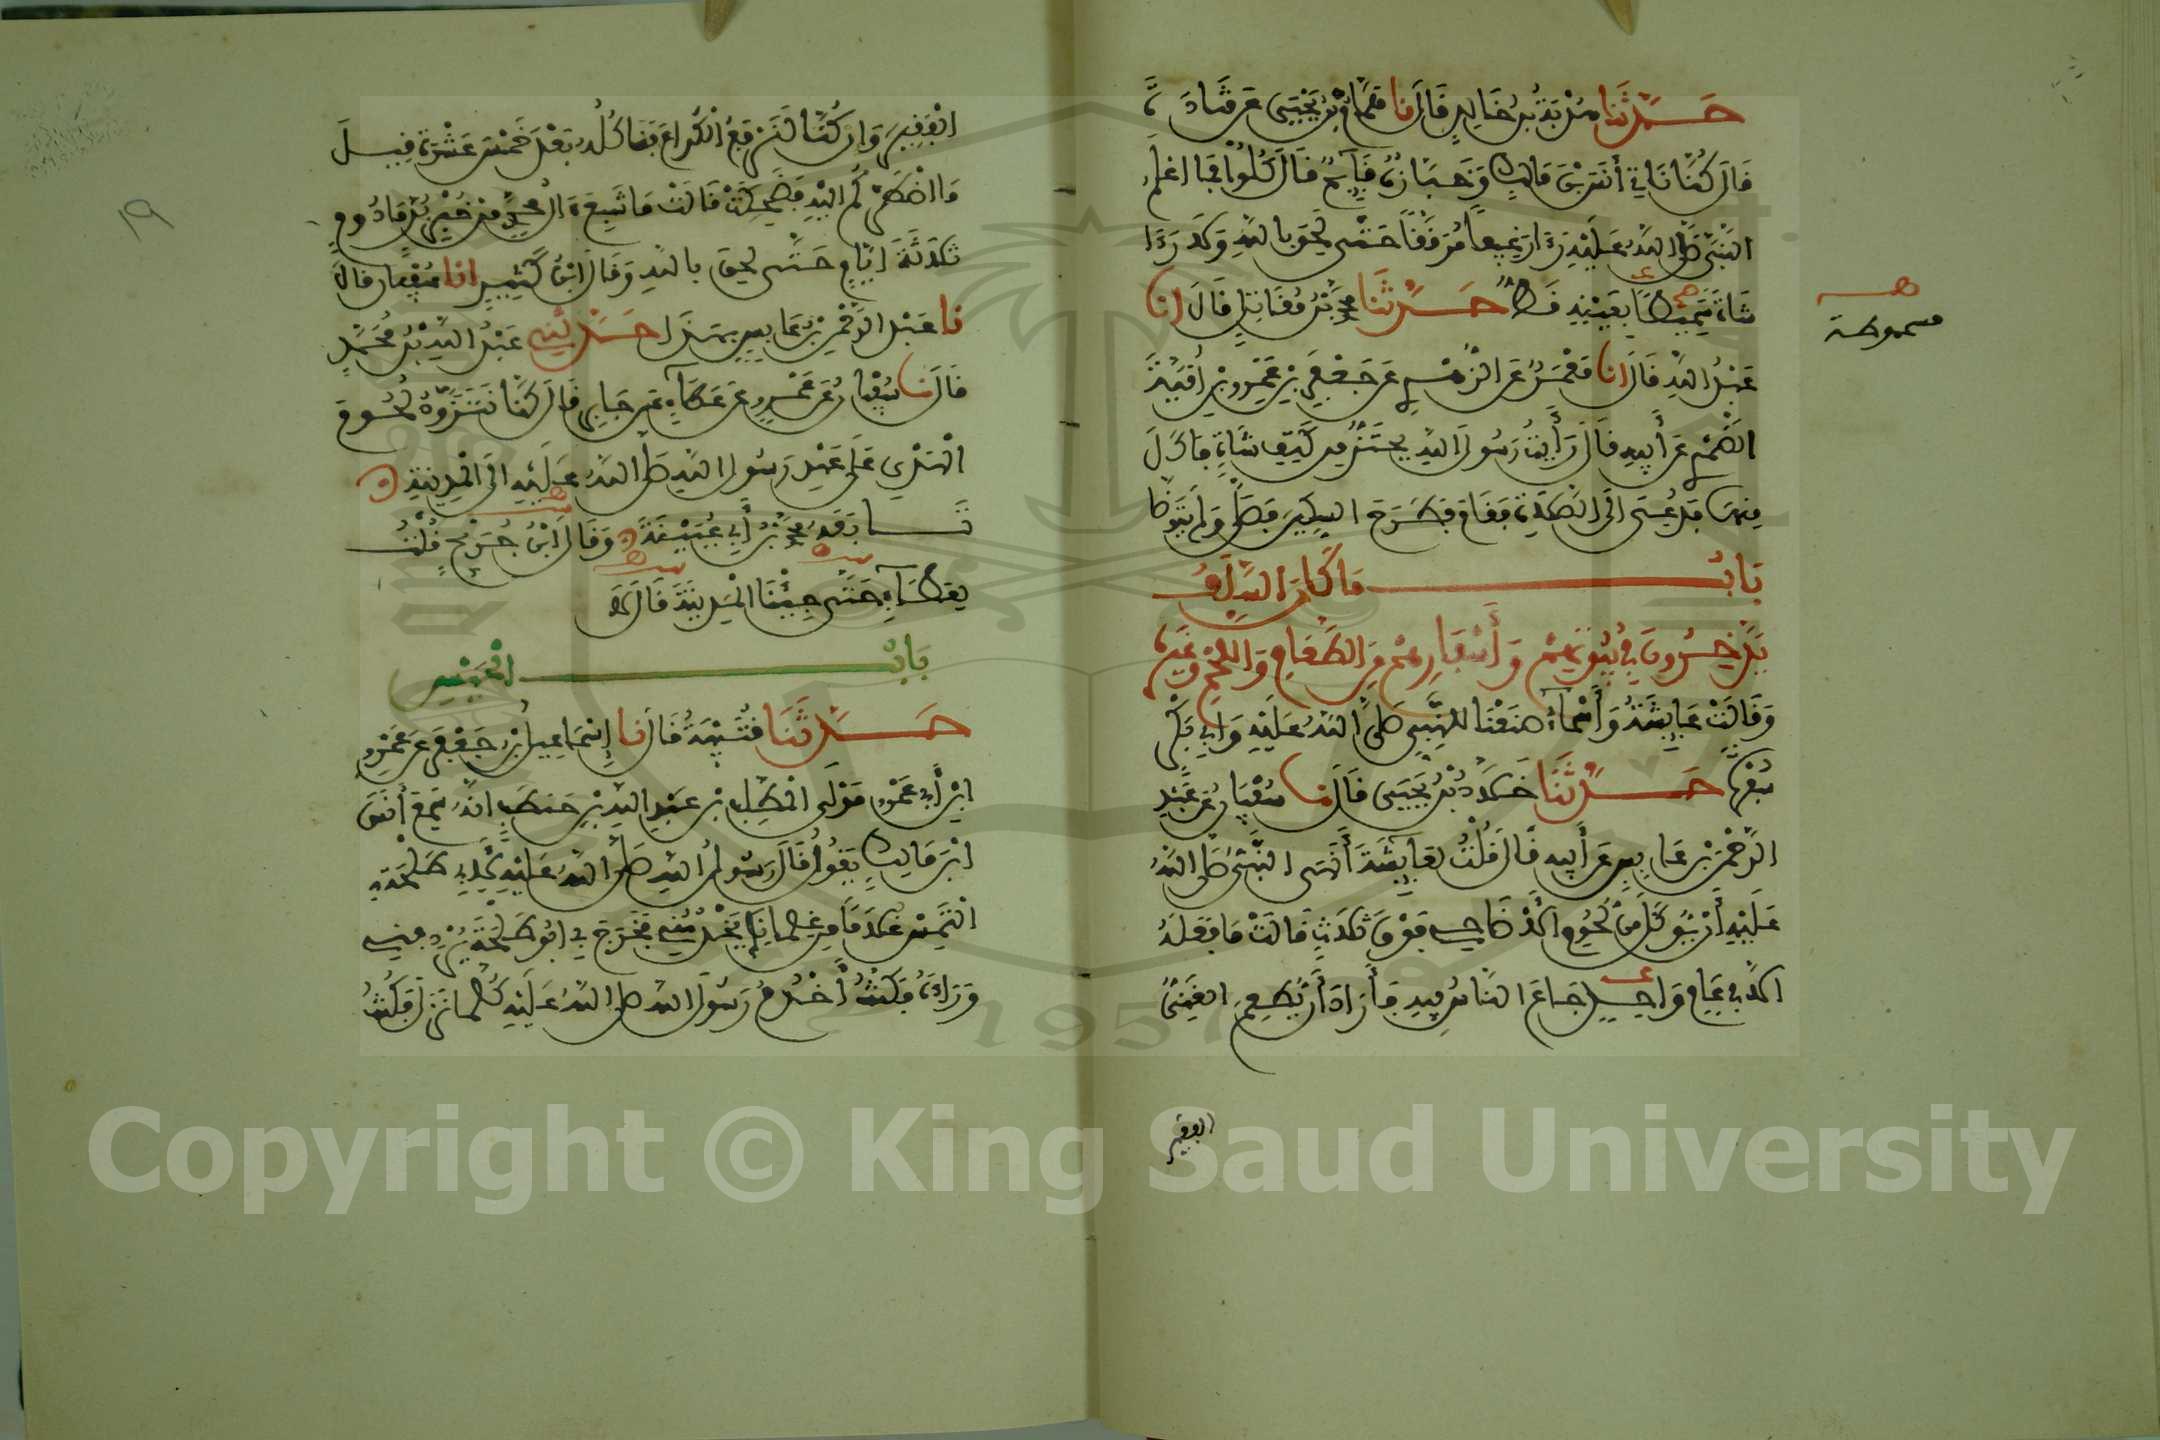 حَدَّثَنَا هُدْبَةُ بْنُ خَالِدٍ قَالَ نا هَمَّامُ بْنُ يَحْيَى عَنْ قَتَادَةَ
قَالَ كُنَّا نَاتِي أَنَسَ بْنَ مَالِكٍ وَخَبَّازُهُ قَائِمٌ قَالَ كُلُوا فَمَا اعْلَمُ
النَّبِيَّ صَلَّى اللهُ عَلَيْهِ رَءَا رَغِيفاً مُرَقَّقاً حَتَّى لَحِقَ بِاللهِ وَلَا رَءَا
شَاةً سَمِيطًا بِعَيْنِهِ قَطُّ حَدَّثَنَا محمد بْنُ مُقَاتِلٍ قَالَ انا
هـ
مسموطة
عَبْدُ اللهِ قَالَ انا مَعْمَرٌ عَنِ الزُّهْرِيِّ عَنْ جَعْفَرِ بْنِ عَمْرِو بْنِ أُمَيَّةَ
الضَّمْرِيِّ عَنْ أَبِيهِ قَالَ رَأَيْتُ رَسُولَ اللهِ يَحْتَزُّ مِن كَتِفِ شَاةٍ فَأَكَلَ
مِنْهَا فَدُعِيَ الَى الصَّلَاةِ فَقَامَ فَطَرَحَ السِّكِّينَ فَصَلَّى وَلَمْ يَتَوَضَّأْ
بَابُ مَا كَانَ السَّلَفُ
يَدَّخِرُونَ فِي بُيُوتِهِمْ وَأَسْفَارِهِمْ مِنَ الطَّعَامِ وَاللَّحْمِ وَغَيْرِهِ
وَقَالَتْ عَائِشَةُ وَأَسْمَاءُ صَنَعْنَا لِلنَّبِيِّ صَلَّى اللهُ عَلَيْهِ وَأَبِي بَكْرٍ
سُفْرَةً حَدَّثَنَا خَلَّادُ بْنُ يَحْيَى قَالَ نا سُفْيَانُ عَنْ عَبْدِ
الرَّحْمٰنِ بْنِ عَابِسٍ عَنْ أَبِيهِ قَالَ قُلْتُ لِعَائِشَةَ أَنَهَى النَّبِيُّ صَلَّى اللهُ
عَلَيْهِ أَنْ يُوكَلَ مِنْ لُحُومِ الْأَضَاحِي فَوْقَ ثَلَاثٍ قَالَتْ مَا فَعَلَهُ
الَّا فِي عَامٍ وَاحِدٍ جَاعَ النَّاسُ فِيهِ فَأَرَادَ أَنْ يُطْعِمَ الْغَنِيُّ
الفقير
١٩
الْفَقِيرَ وَإِن كُنَّا لَنَرْفَعُ الْكُرَاعَ فَنَاكُلُهُ بَعْدَ خَمْسَ عَشْرَةَ قِيلَ
مَا اضْطَرَّكُمُ الَيْهِ فَضَحِكَتْ قَالَتْ مَا شَبِعَ ءَالُ محمد مِنْ خُبْزِ بُرٍّ مَادُومٍ
ثَلَاثَةَ ايَّامٍ حَتَّى لَحِقَ بِاللهِ وَقَالَ ابْنُ كَثِيرٍ انا سُفْيَانُ قَالَ
نا عَبْدُ الرَّحْمٰنِ بْنُ عَابِسٍ بِهَذَا حَدَّثَنِي عَبْدُ اللهِ بْنُ مُحَمَّدٍ
قَالَ نا سُفْيَانُ عَنْ عَمْرٍو عَنْ عَطَاءٍ عَنْ جَابِرٍ قَالَ كُنَّا نَتَزَوَّدُ لُحُومَ
الْهَدْيِ عَلَى عَهْدِ رَسُولِ اللهِ صَلَّى اللهُ عَلَيْهِ الَى الْمَدِينَةِ
تَابَعَهُ محمد عَنِ ابْنِ عُيَيْنَةَ وَقَالَ ابْنُ جُرَيْجٍ قُلْتُ
لِعَطَاءٍ حَتَّى جِئْنَا الْمَدِينَةَ قَالَ لَا
بَابُ الْحَيْسِ
حَدَّثَنَا قُتَيْبَةُ قَالَ نا إِسْمَاعِيلُ بْنُ جَعْفَرٍ عَنْ عَمْرِو
ابْنِ أَبِي عَمْرٍو مَوْلَى الْمُطَّلِبِ بْنِ عَبْدِ اللهِ بْنِ حَنطَبٍ أَنَّهُ سَمِعَ أَنَسَ
ابْنَ مَالِكٍ يَقُولُ قَالَ رَسُولُ اللهِ صَلَّى اللهُ عَلَيْهِ لِأَبِي طَلْحَةَ
الْتَمِسْ غُلَاماً مِن غِلْمَانِكُمْ يَخْدُمُنِي فَخَرَجَ بِي ابُو طَلْحَةَ يُرْدِفُنِي
وَرَاءَهُ فَكُنْتُ أَخْدُمُ رَسُولَ اللهِ صلى اللهُ عَلَيْهِ كُلَّمَا نَزَلَ فَكُنْتُ
1957
Copyright © King Saud University